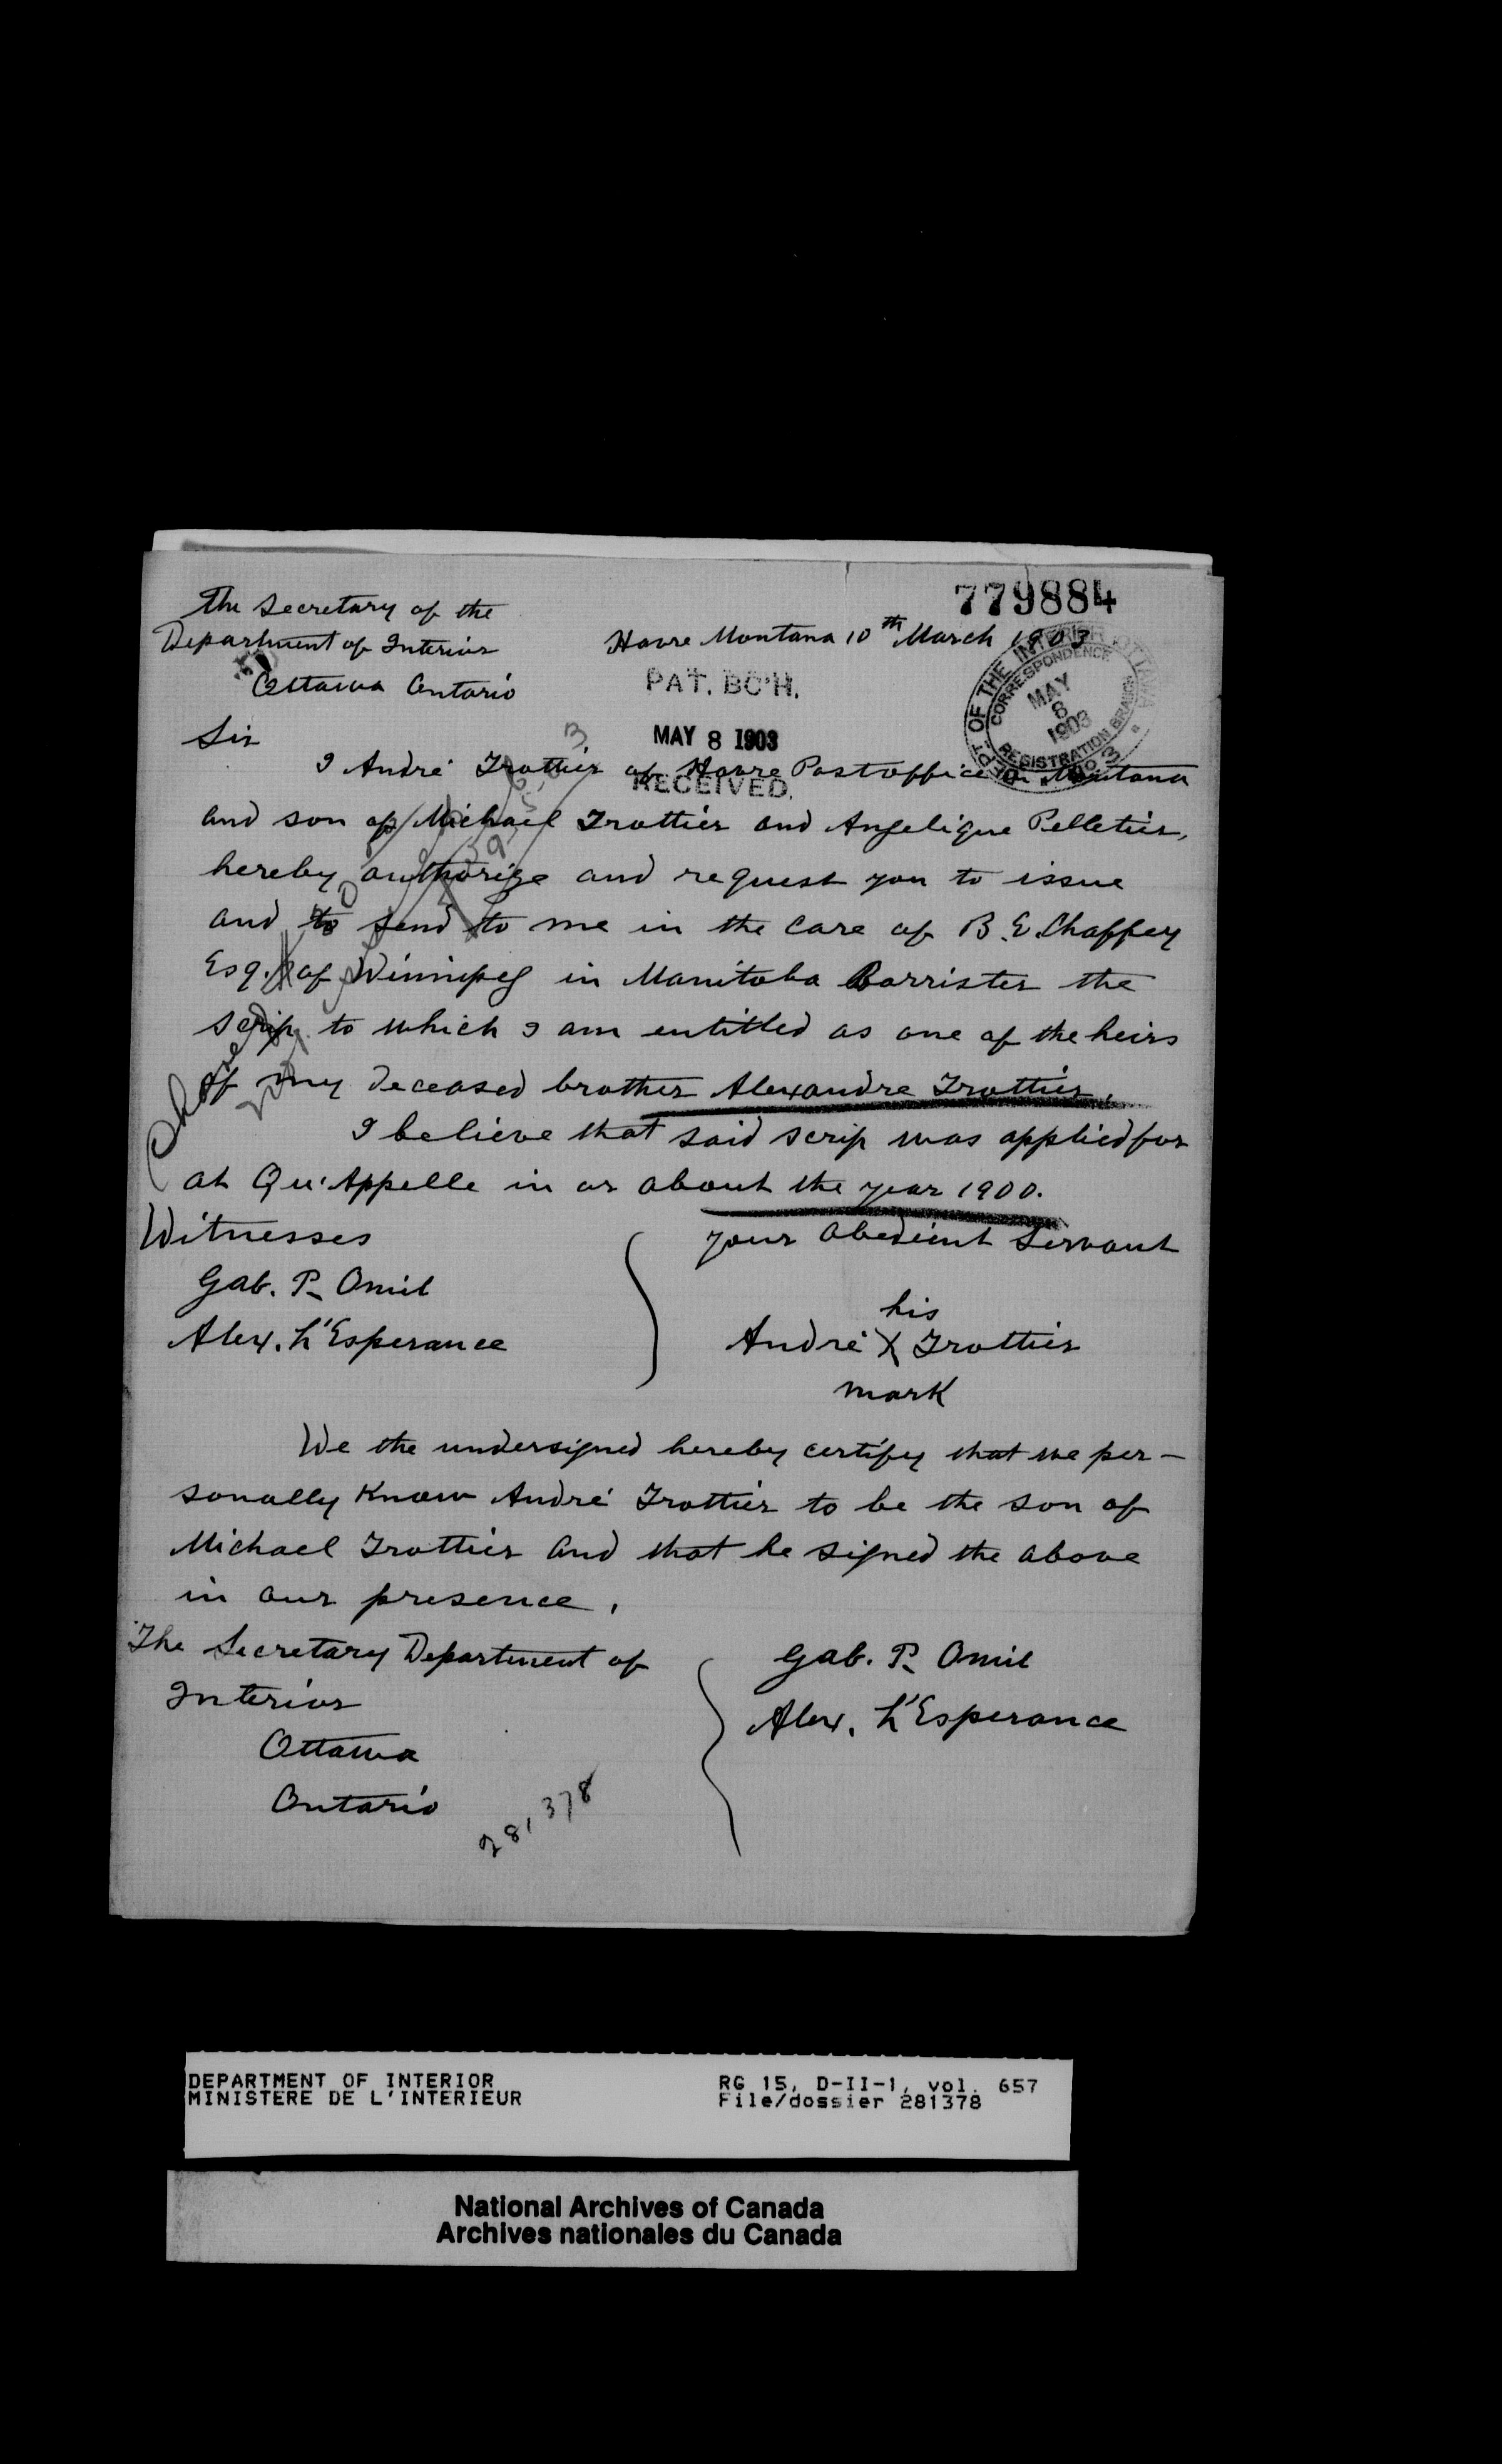 779884
The Secretary of the
Department of Interior
Ottawa Ontario
Havre Montana 10th March 1903
PAT. BCH.
MAY 8 1903
RECEIVED.
DEPT OF THE INTERIOR OTTAWA
CORRESPONDENCE
MAY
8
1903
REGISTRATION BRANCH
Sir
I André Trottier of Havre Postoffice in Montana
and son of Michael Trottier and Angelique Pelletier,
hereby authorize and request you to issue
and to send to me in the care of B. E. Chaffey
Esq. of Winnipeg in Manitoba Barrister the
scrip to which I am entitled as one of the heirs
of my deceased brother Alexandre Trottier.
I believe that said scrip was applied for
at Qu'Appelle in or about the year 1900.
Witnesses
Gab. P. Omil
Alex. L'Esperance
your obedient servant
his
André X Trottier
mark
We the undersigned hereby certify that we per-
sonally know André Trottier to be the son of
Michael Trottier and that he signed the above
in our presence.
The Secretary Department of
Interior
Ottawa
Ontario
Gab. P. Omil
Alex. L'Esperance
281,378
DEPARTMENT OF INTERIOR
MINISTERE DE L'INTERIEUR
RG 15, D-II-1, vol. 657
File/dossier 281378
National Archives of Canada
Archives nationales du Canada